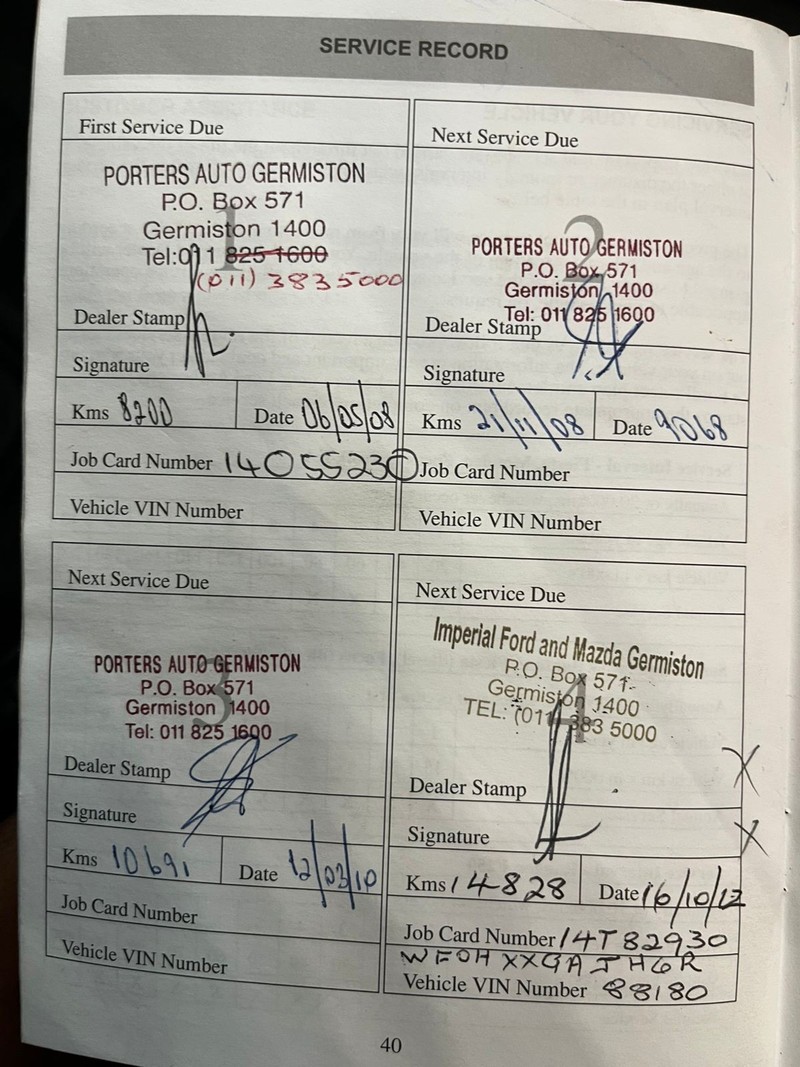 SERVICE RECORD
First Service Due
1
PORTERS AUTO GERMISTON
P.O. Box 571
Germiston 1400
Tel:011 825 1600
(011) 3835000
Dealer Stamp
Signature
Kms 8200 Date 06/05/08
Job Card Number 1405523
Vehicle VIN Number
Next Service Due
2
PORTERS AUTO GERMISTON
P.O. Box 571
Germiston 1400
Tel: 011 825 1600
Dealer Stamp
Signature
Kms 21/11/08 Date 9068
Job Card Number
Vehicle VIN Number
Next Service Due
3
PORTERS AUTO GERMISTON
P.O. Box 571
Germiston 1400
Tel: 011 825 1600
Dealer Stamp
Signature
Kms 10691 Date 12/03/10
Job Card Number
Vehicle VIN Number
Next Service Due
4
Imperial Ford and Mazda Germiston
P.O. Box 571
Germiston 1400
TEL: (011) 383 5000
Dealer Stamp
X
Signature
X
Kms 14828 Date 16/10/12
Job Card Number 14T82930
WF0HXXGAJH6R
Vehicle VIN Number 88180
40